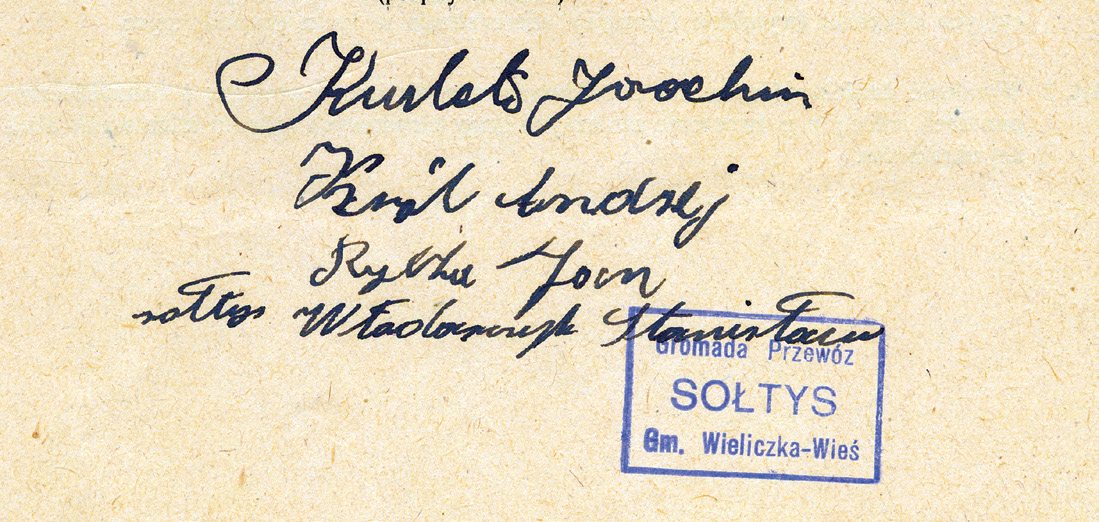 Joachim
Król Andrzej
Rybka Jan
sołtys Włodarczyk Stanisław
Gromada Przewóz
SOŁTYS
Gm. Wieliczka-Wieś